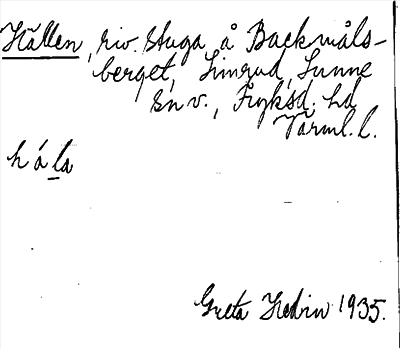 Hällen, riv. stuga å Backmåls-
berget, Limsrud, Sunne
sn v., Fryksd. hd
Värml. l.
hála
Greta Hedin 1935.